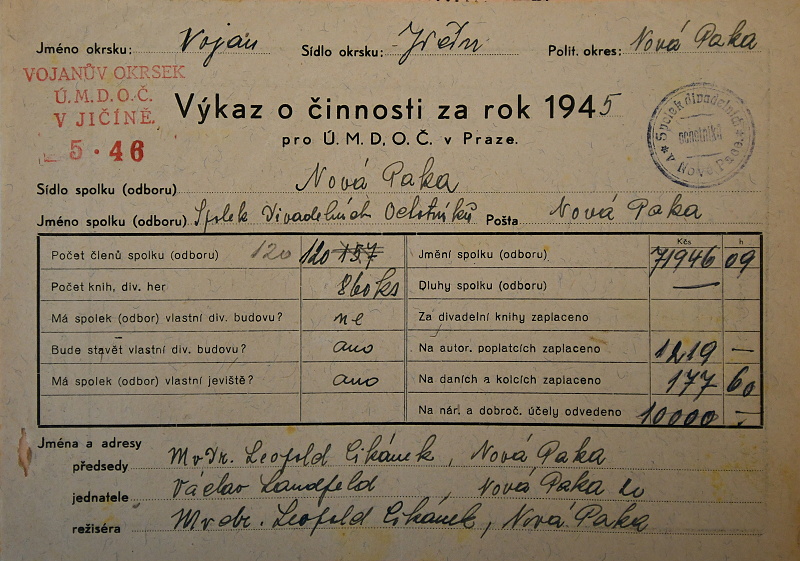 Jméno okrsku: Vojan Sídlo okrsku: Jičín Polit. okres: Nová Paka
VOJANŮV OKRSEK
Ú.M.D.O.Č.
V JIČÍNĚ.
5 · 46
Výkaz o činnosti za rok 1945
pro Ú. M. D. O. Č. v Praze.
Spolek divadelních ochotníků v Nové Pace
Sídlo spolku (odboru) Nová Paka
Jméno spolku (odboru) Spolek Divadelních Ochotníků Pošta Nová Paka
Kčs h
Počet členů spolku (odboru) 120 120 157 Jmění spolku (odboru) 71946 09
Počet knih, div. her 860 ks Dluhy spolku (odboru) —
Má spolek (odbor) vlastní div. budovu? ne Za divadelní knihy zaplaceno
Bude stavět vlastní div. budovu? ano Na autor. poplatcích zaplaceno 1219 —
Má spolek (odbor) vlastní jeviště? ano Na daních a kolcích zaplaceno 177 60
Na nár. a dobroč. účely odvedeno 10000 —
Jména a adresy
předsedy MvDr. Leopold Cikánek, Nová Paka
jednatele Václav Landfeld, Nová Paka
režiséra Mvdr. Leopold Cikánek, Nová Paka